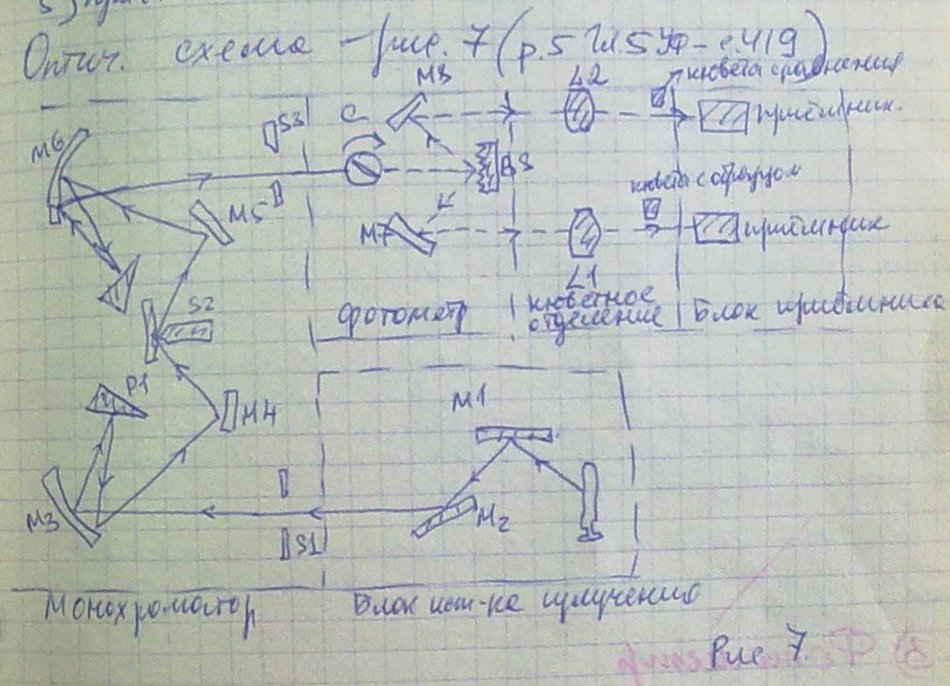 Оптич. схема – рис. 7
М8
L2
кювета сравнения
М6
S3
С
приёмник.
BS
М5
кювета с образцом
М7
приёмник
S2
L1
фотометр
кюветное
отделение
Блок приёмника
P1
М4
М1
М3
М2
S1
Монохроматор
Блок ист-ка излучения
Рис 7.